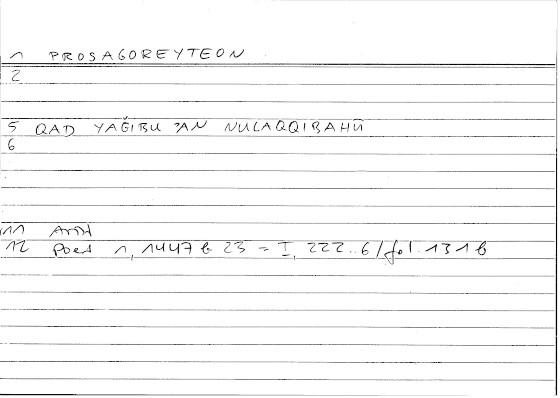 1 PROSAGOREYTEON
2
5 QAD YAĞIBU ʾAN NULAQQIBAHŪ
6
11 Arist
12 Poet 1, 1447 b 23 = I, 222..6/fol. 131 b